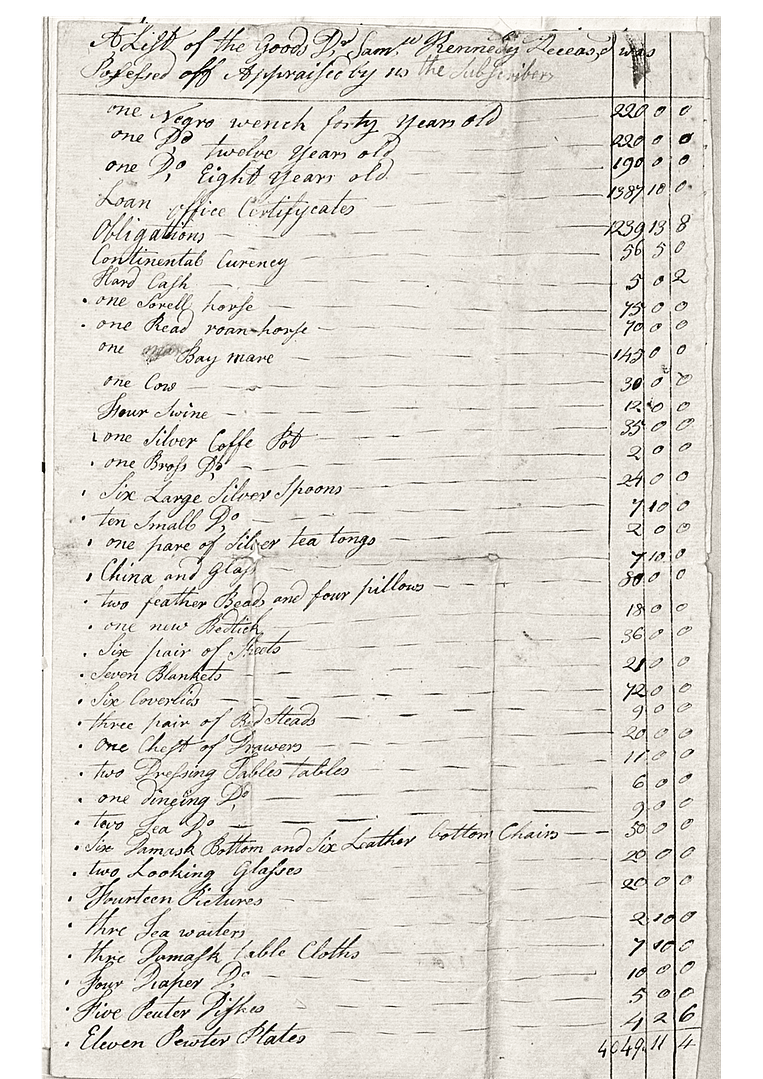 A List of the Goods Dr. Sam.ll Kennedy Deceased was
Posessed off Appraised by us the Subscribers
one Negro wench forty years old 220 0 0
one Do. twelve years old 220 0 0
one Do. Eight years old 190 0 0
Loan office Certifycates 1387 10 0
Obligations 1239 13 8
Continental Curency 56 5 0
Hard Cash 5 0 2
one Sorell horse 75 0 0
one Read roan horse 70 0 0
one Bay mare 145 0 0
one Cow 30 0 0
Four Swine 12 0 0
one Silver Coffe Pot 35 0 0
one Brass Do. 2 0 0
Six Large Silver Spoons 24 0 0
ten Small Do. 7 10 0
one pare of Silver tea tongs 2 0 0
China and Glass 7 10 0
two feather Beads and four pillows 80 0 0
one new Bedtick 18 0 0
Six pair of Sheets 36 0 0
Seven Blankets 21 0 0
Six Coverlids 72 0 0
three pair of Bed Steads 9 0 0
one Chest of Drawers 20 0 0
two Dressing Tables tables 11 0 0
one dineing Do. 6 0 0
two Tea Do 9 0 0
Six Damask Bottom and Six Leather bottom Chairs 50 0 0
two Looking Glasses 20 0 0
Fourteen Pictures 20 0 0
thre Tea waiters 2 10 0
thre Damask table Cloths 7 10 0
Four Diaper Do. 10 0 0
Five Peuter Dishes 5 0 0
Eleven Pewter Plates 4 2 6
4049 11 4